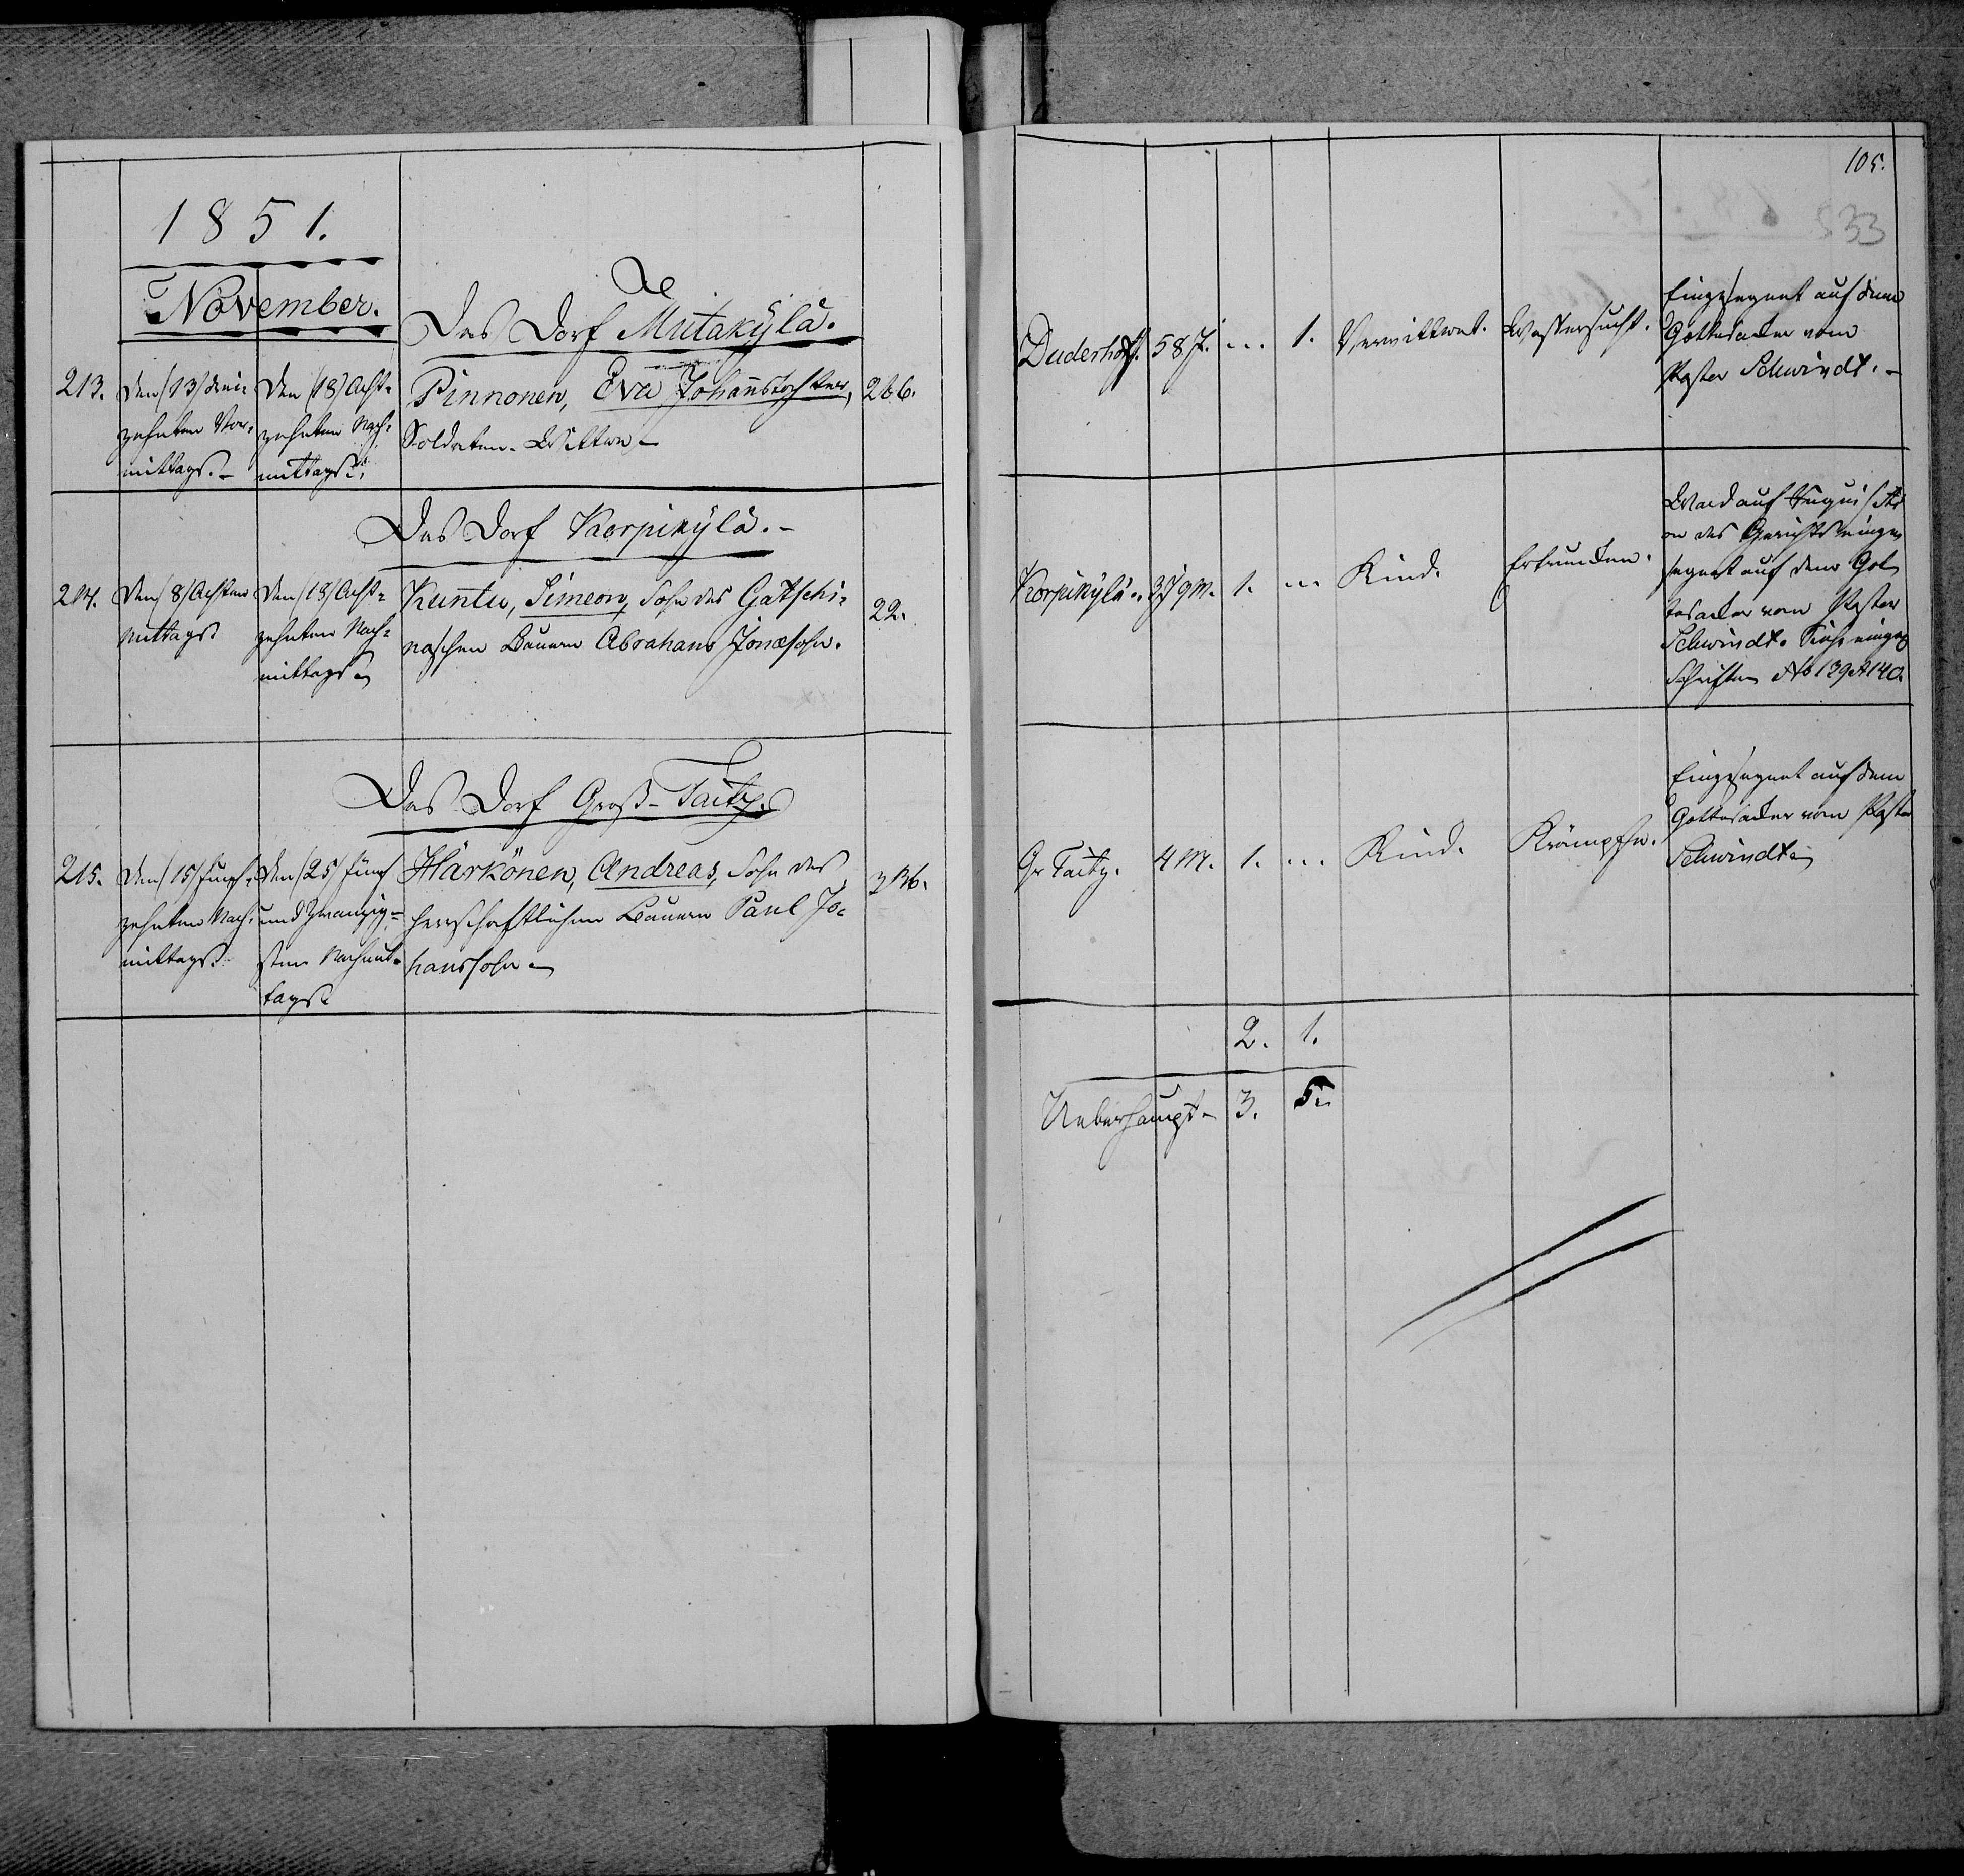 1851.
November.
Das Dorf Mutakÿlä.
213. Den (13) drei-
zehnten Vor-
mittags. -
Den (18) Acht-
zehnten Nach-
mittags.
Pinnonen, Eva Johannstochter,
Soldaten-Wittwe -
266.
Das Dorf Korpikÿlä. -
214. Den (8) Achten
Mittags
Den (18) Acht-
zehnten Nach-
mittags
Kunttu, Simeon, Sohn des Gatschi-
naschen Bauern Abrahams Jonassohn.
22.
Das Dorf Groß-Taitz.
215. Den (15) funf-
zehnten Nach-
mittags.
Den (25) fünf
und zwanzig-
sten Nachmit-
tags.
Härkönen, Andreas, Sohn des
herrschaftlichen Bauern Paul Jo-
hanssohn
336.
105.
533
Duderhoff. 58 J. ... 1. Verwittwet. Wassersucht.
Eingesegnet auf dem
Gottesacker vom
Pastor Schwindt. -
Korpikÿlä. 3 J 9 M. 1. ... Kind. Ertrunken.
Ward auf Requisiti
on des Gerichts einge
segnet auf dem Got
tesacker vom Pastor
Schwindt. Siehe einge
Schriften No 139 et 140.
Gr Taitz. 4 M. 1. ... Kind. Krämpfen.
Eingesegnet auf dem
Gottesacker vom Pastor
Schwindt
2. 1.
Ueberhaupt - 3. 5.